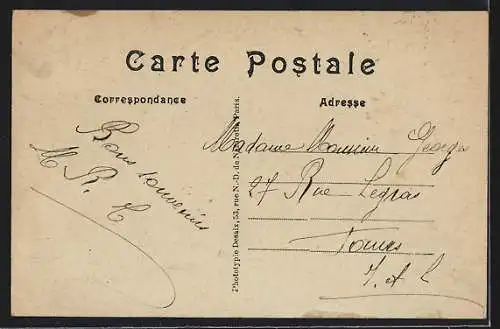 Carte Postale
Correspondance
Adresse
Bons souvenirs
M. R. C
Phototypie Desaix, 53, rue N.-D. de Nazareth, Paris.
Madame Georges
27 Rue Legras
Tours
I. & L